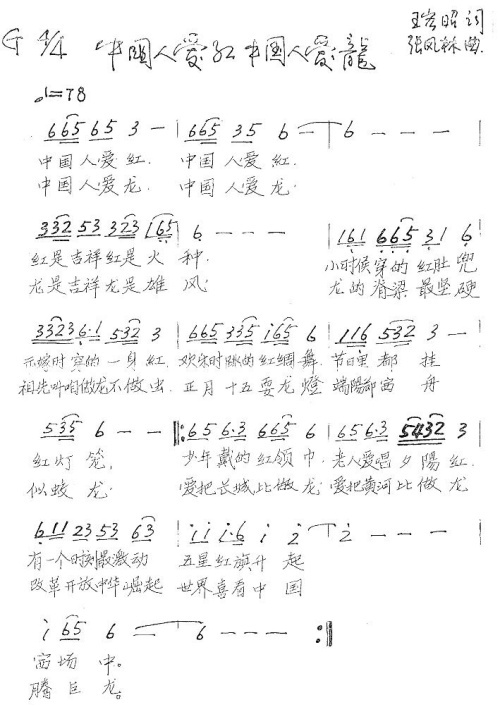 G 4/4 中国人爱红 中国人爱龍
王宏昭 词
张凤林 曲
♩=78
6 6 5 6 5 3 — | 6 6 5 3 5 6 — | 6 — — — |
中国人爱红. 中国人爱红.
中国人爱龙. 中国人爱龙.
3 3 2 5 3 3 2 3 1 6 5 | 6 — — — | 1 6 1 6 6 5 3 1 6 |
红是吉祥红是火种. 小时候穿的红肚兜
龙是吉祥龙是雄风. 龙的脊梁最坚硬
3 3 2 3 6·1 5 3 2 3 | 6 6 5 3 3 5 i 6 5 6 | 1 1 6 5 3 2 3 — |
时穿的一身红. 欢乐时跳的红绸舞. 节日里都挂
祖先叫咱做龙不做虫. 正月十五耍龙燈 端陽都 舟
5 3 5 6 — — |: 6 5 6·3 6 6 5 6 | 6 5 6·3 5 4 3 2 3 |
红灯笼, 少年戴的红领巾. 老人爱唱夕陽红.
似蛟龙. 爱把长城比做龙 爱把黄河比做龙
6 1 1 2 3 5 3 6 3 | i i i·6 i 2 — | 2 — — — |
有一个时刻最激动 五星红旗升起
改革开放中华崛起 世界喜看中国
i 6 5 6 — | 6 — — — :||
场中。
腾巨龙。